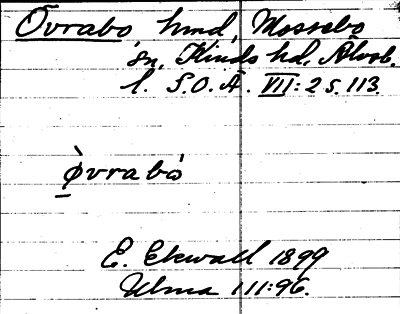 Övrabo hmd, Mossebo
sn, Kinds hd, Älvsb.
l. S.O.Ä. VII:2 s. 113
òvrabó
E. Ekwall 1899
Ulma 111:96.